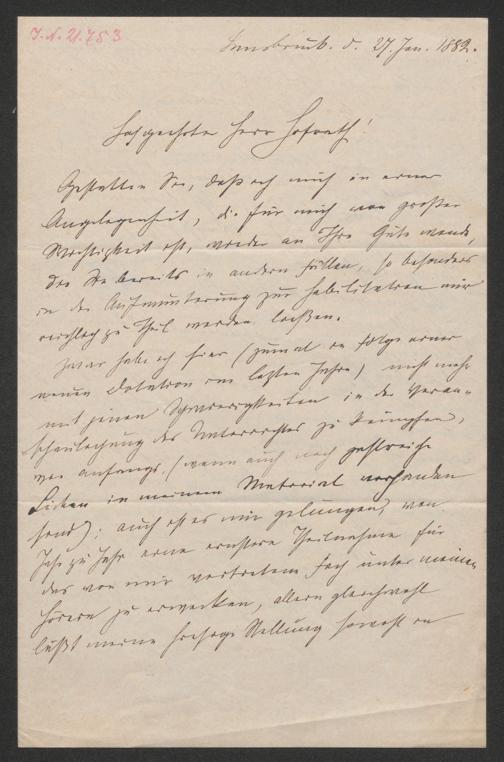 I.N. 21.753
Innsbruck. d. 27. Jan. 1882.
Hochgeehrter Herr Hofrath!
Gestatten Sie, daß ich mich in einer
Angelegenheit, die für mich von großer
Wichtigkeit ist, wieder an Ihre Güte wende,
die Sie bereits in andern Fällen, so besonders
in der Aufmunterung zur Habilitation mir
reichlich zu Theil werden ließen.
Zwar habe ich hier (zumal in Folge einer
neuen Dotation im letzten Jahre) nicht mehr
mit jenen Schwierigkeiten in der Veran-
schaulichung des Unterrichtes zu kämpfen,
wie anfangs, (wenn auch noch zahlreiche
Lücken in meinem Material vorhanden
sind); auch ist es mir gelungen, von
Jahr zu Jahr eine ernstere Theilnahme für
das von mir vertretene Fach unter meinen
Hörern zu erwecken, allein gleichwohl
läßt meine hiesige Stellung sowohl in